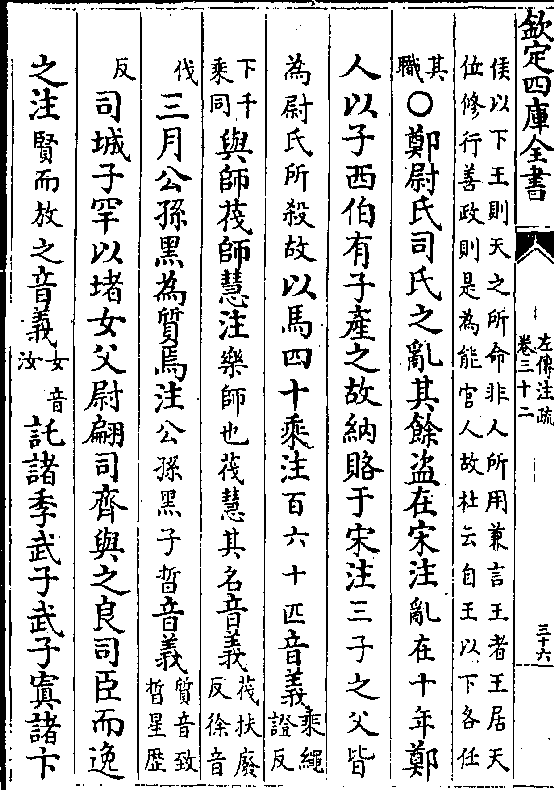 欽定四庫全書
左傳注疏
卷三十二
三十六
侯以下王則天之所命非人所用兼言王者王居天
位修行善政則是為能官人故杜云自王以下各任
其職○鄭尉氏司氏之亂其餘盜在宋注亂在十年鄭
人以子西伯有子產之故納賂于宋注三子之父皆
為尉氏所殺故以馬四十乘注百六十匹音義乘繩證反
下千乘同與師茷師慧注樂師也茷慧其名音義茷扶廢反徐音
伐三月公孫黑為質焉注公孫黑子晳音義質音致晳星歷
反司城子罕以堵女父尉翩司齊與之良司臣而逸
之注賢而放之音義女音汝託諸季武子武子寘諸卞